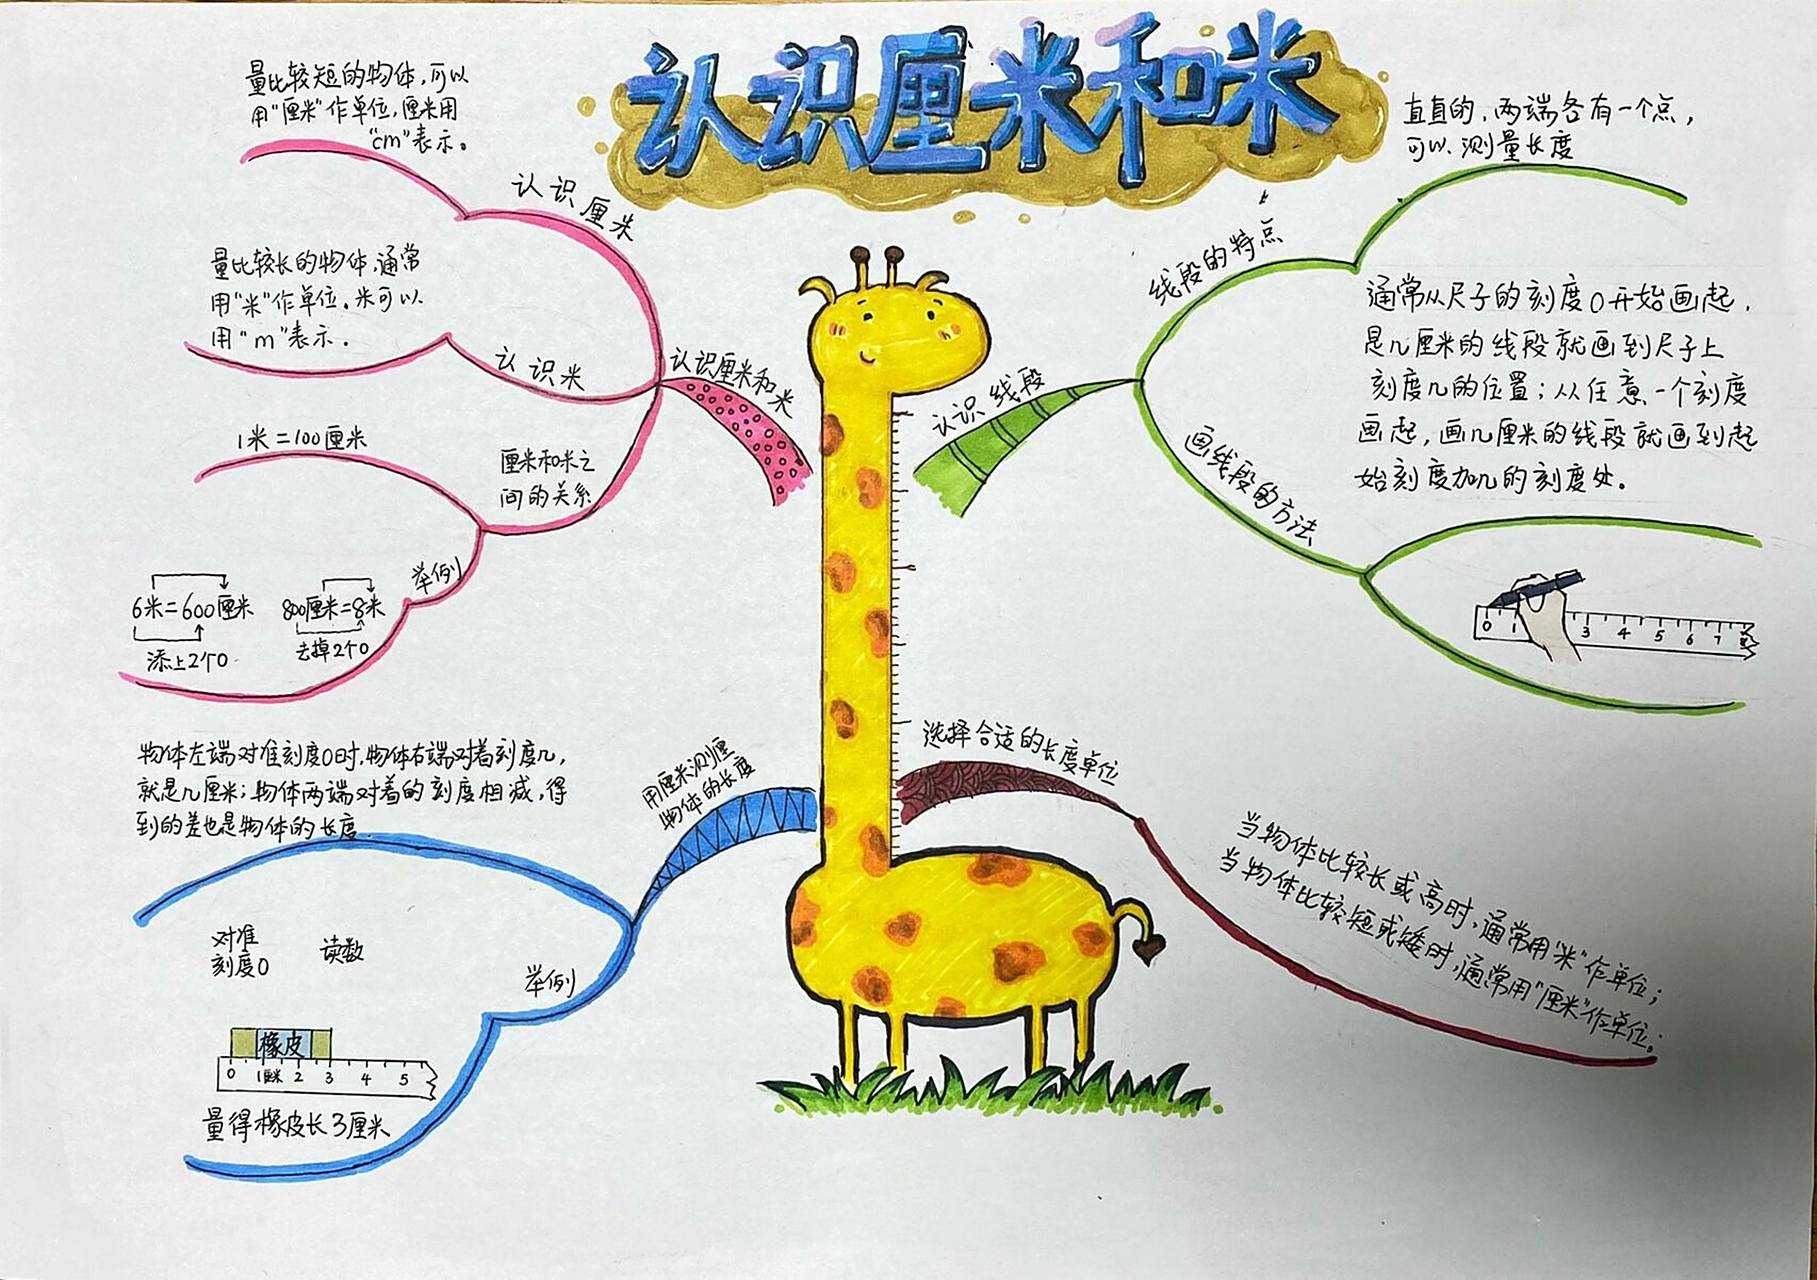 认识厘米和米
量比较短的物体,可以
用"厘米"作单位,厘米用
"cm"表示。
认识厘米
量比较长的物体,通常
用"米"作单位。米可以
用"m"表示。
认识米
认识厘米和米
1米=100厘米
厘米和米之
间的关系
举例
6米=600厘米
添上2个0
800厘米=8米
去掉2个0
直直的,两端各有一个点,
可以测量长度
线段的特点
认识线段
通常从尺子的刻度0开始画起,
是几厘米的线段就画到尺子上
刻度几的位置;从任意一个刻度
画起,画几厘米的线段就画到起
始刻度加几的刻度处。
画线段的方法
0 1 3 4 5 6 7 8
物体左端对准刻度0时,物体右端对着刻度几,
就是几厘米;物体两端对着的刻度相减,得
到的差也是物体的长度
用厘米测厘
物体的长度
对准
刻度0
读数
举例
橡皮
0 1厘米 2 3 4 5
量得橡皮长3厘米
选择合适的长度单位
当物体比较长或高时,通常用"米"作单位;
当物体比较短或矮时,通常用"厘米"作单位。